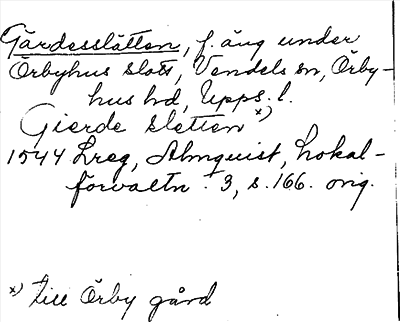 Gärdesslätten, f. äng under
Örbyhus slott, Vendels sn, Örby-
hus hd, Upps. l.
Gierde sletten x)
1544 Lreg, Almquist, Lokal-
förvaltn. 3, s. 166. orig.
x) till Örby gård